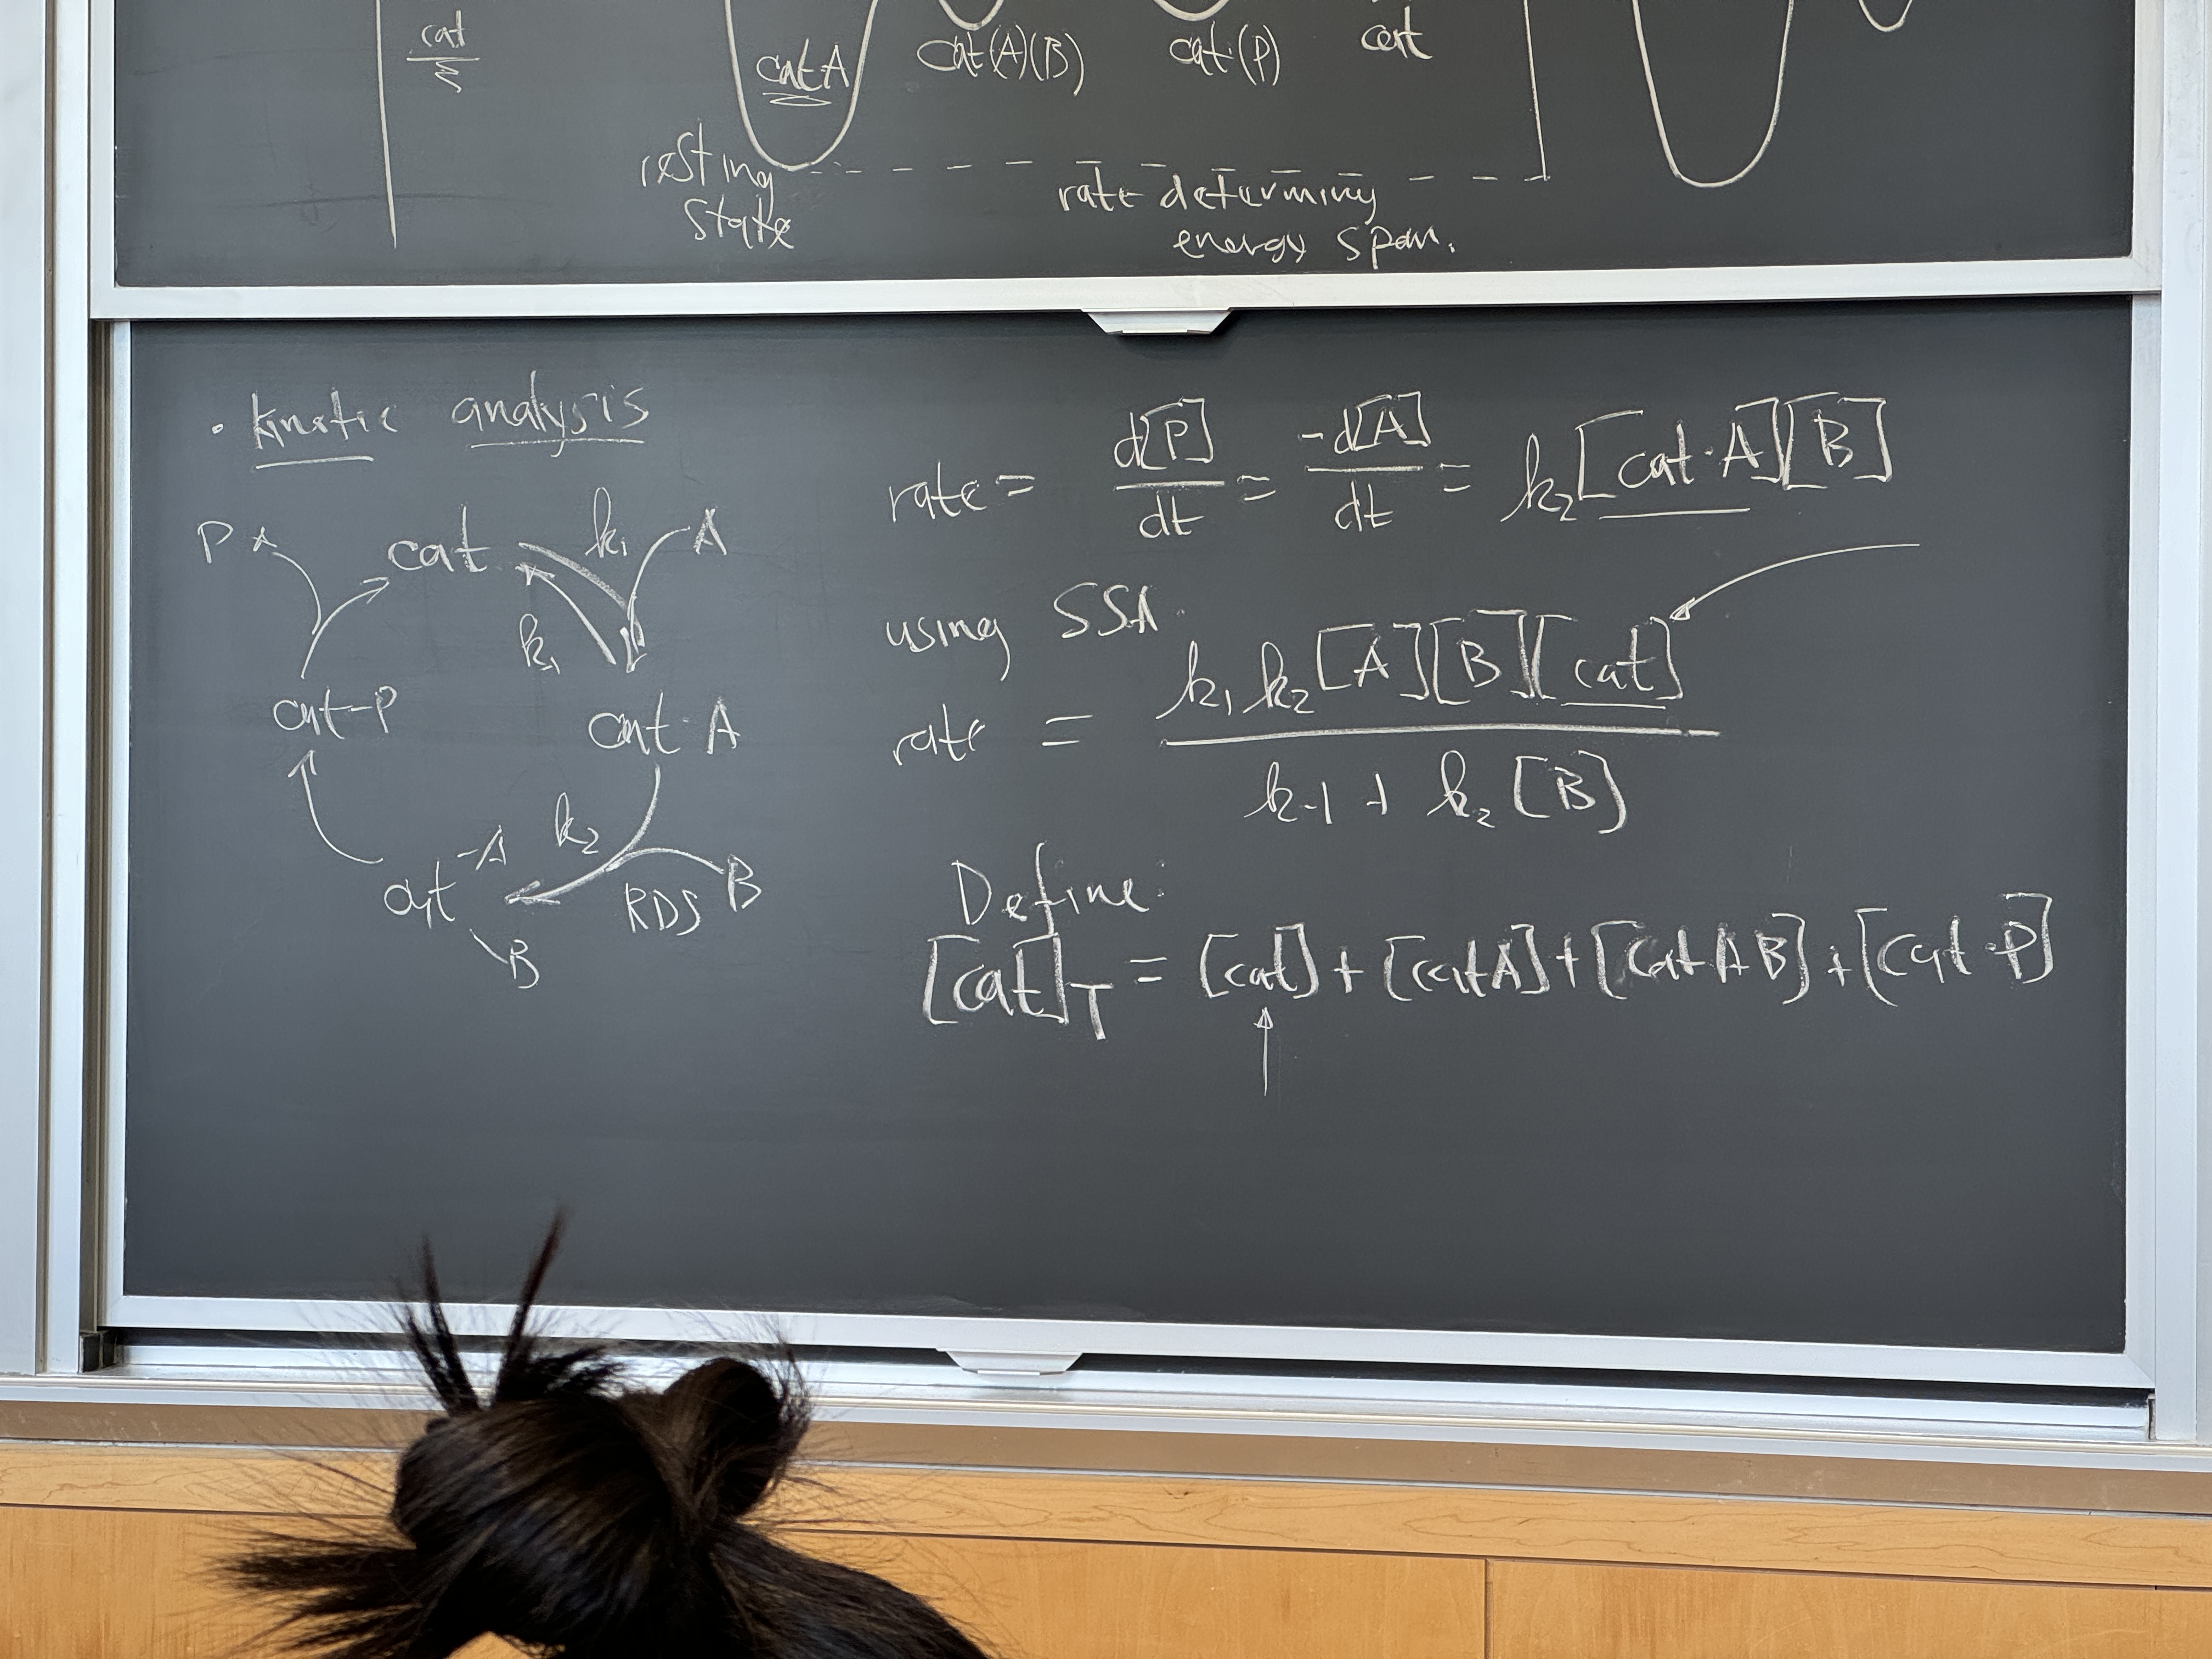 cat
catA
cat(A)(B)
cat·(P)
cat
resting
state
rate determining
energy span.
· kinetic analysis
P
cat
k₁
A
k₁
cat-P
cat·A
k₂
cat
-A
B
RDS
B
rate = d[P]/dt = -d[A]/dt = k₂[cat·A][B]
using SSA.
rate = k₁k₂[A][B][cat] / k-1 + k₂[B]
Define:
[cat]T = [cat] + [catA] + [catAB] + [cat·P]